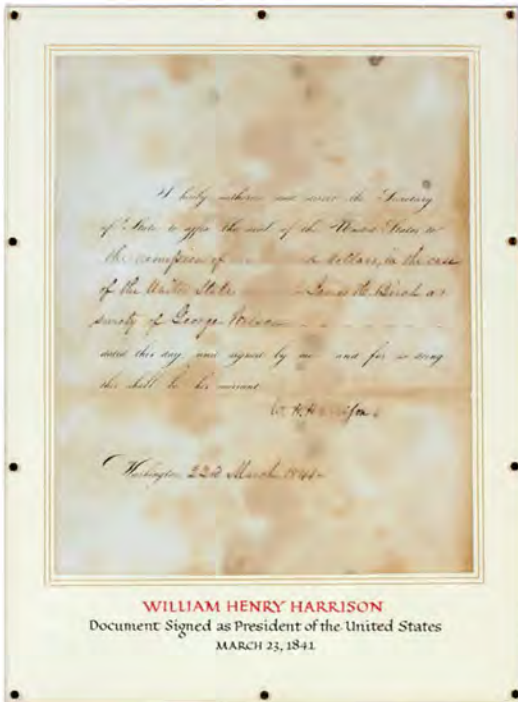 I hereby authorize and direct the Secretary
of State to affix the seal of the United States to
the remission of dollars, in the case
of the United States James H. Birch as
surety of George Wilson
dated this day, and signed by me and for so doing
this shall be his warrant.
W. H. Harrison
Washington 22d March 1841
WILLIAM HENRY HARRISON
Document Signed as President of the United States
MARCH 23, 1841